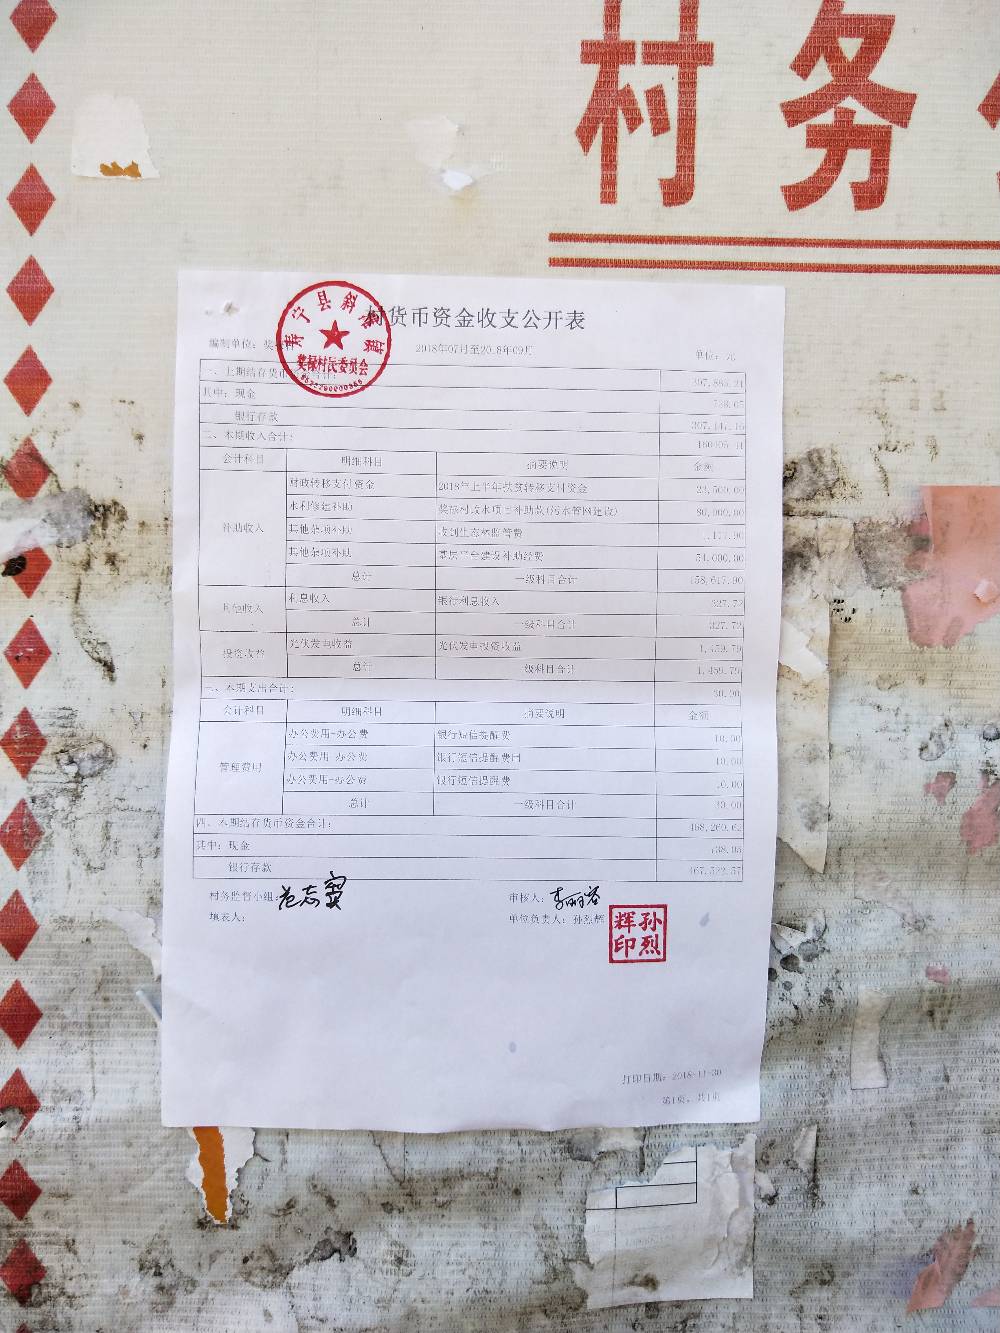 村务
村货币资金收支公开表
寿宁县斜滩镇
奖禄村民委员会
编制单位：奖禄村 2018年07月至2018年09月 单位：元
一、上期结存货币资金合计： 307,885.21
其中：现金 738.05
银行存款 307,147.16
二、本期收入合计：
会计科目 明细科目 摘要说明 金额
补助收入 财政转移支付资金 2018年上半年扶贫转移支付资金 23,500.00
水利修建补助 奖禄村改水项目补助款(污水管网建设) 80,000.00
其他杂项补助 收到生态林监管费 1,117.90
其他杂项补助 基层平台建设补助经费 54,000.00
总计 一级科目合计 158,617.90
其他收入 利息收入 银行利息收入 327.72
总计 一级科目合计 327.72
投资收益 光伏发电收益 光伏发电投资收益 1,459.79
总计 一级科目合计 1,459.79
三、本期支出合计： 30.00
会计科目 明细科目 摘要说明 金额
管理费用 办公费用-办公费 银行短信提醒费 10.00
办公费用-办公费 银行短信提醒费用 10.00
办公费用-办公费 银行短信提醒费 10.00
总计 一级科目合计 30.00
四、本期结存货币资金合计： 468,260.62
其中：现金 738.05
银行存款 467,522.57
村务监督小组： 范志 审核人： 李丽
填表人： 单位负责人：孙烈辉
孙烈辉印
打印日期：2018-11-30
第1页，共1页